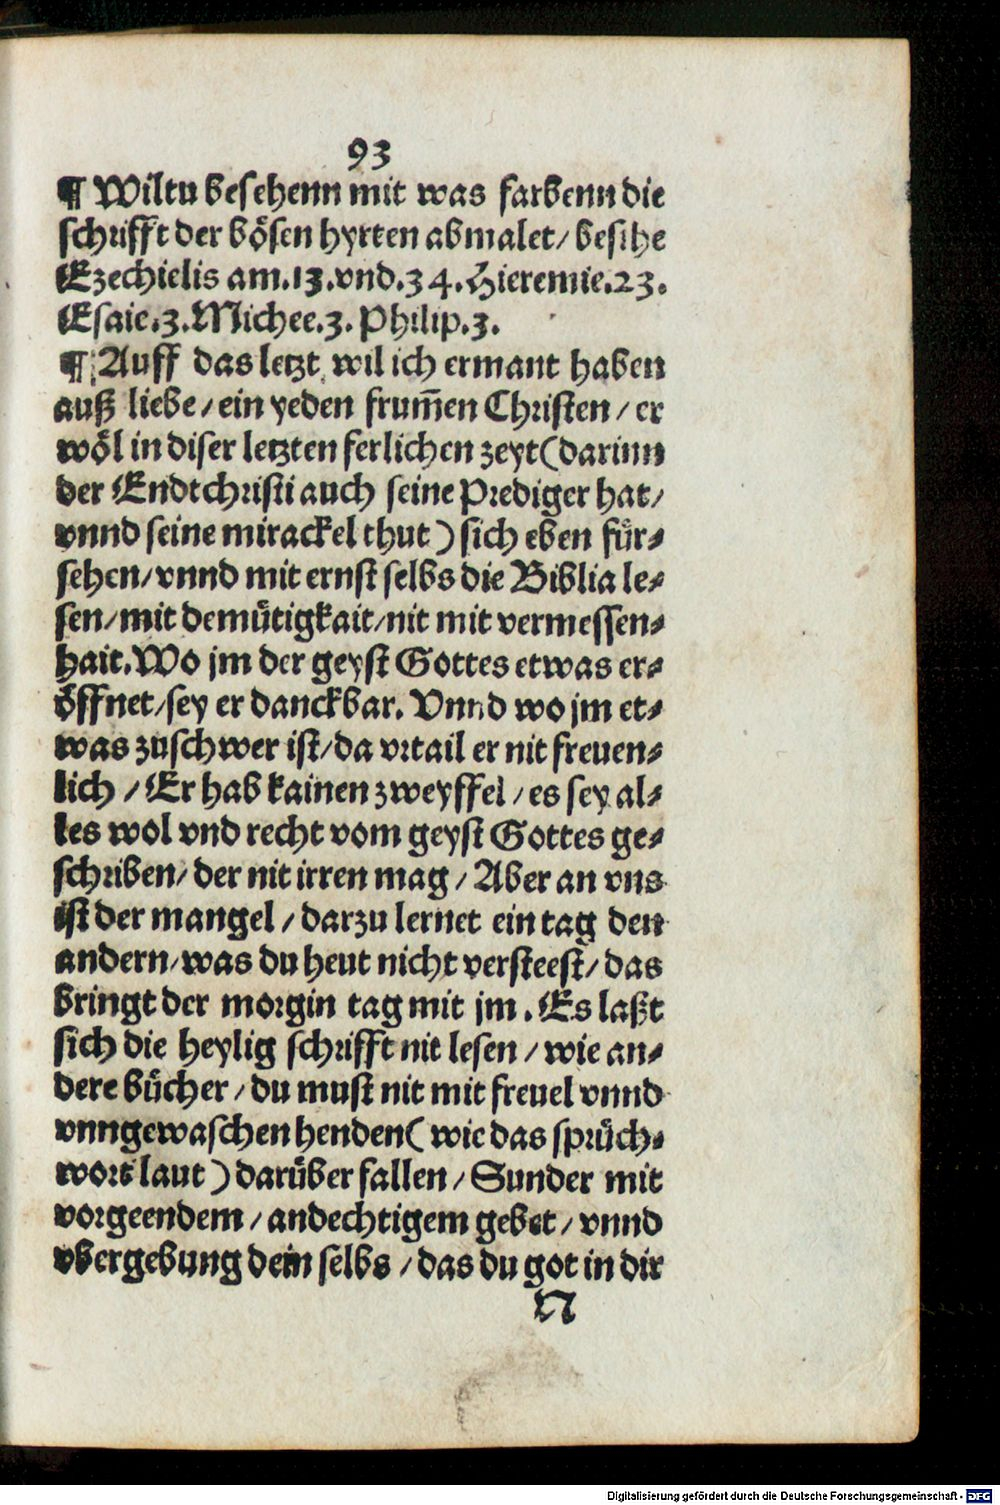 93
¶ Wiltu besehenn mit was farbenn die
schrifft der bösen hyrten abmalet/ besihe
Ezechielis am.13.vnd.34.Hieremie.23.
Esaie.3.Michee.3. Philip.3.
¶ Auff das letzt wil ich ermant haben
auß liebe/ ein yeden frum̄en Christen/ er
wöl in diser letzten ferlichen zeyt(darinn
der Endtchristi auch seine Prediger hat/
vnnd seine mirackel thut) sich eben für⸗
sehen/ vnnd mit ernst selbs die Biblia le⸗
sen/ mit demütigkait/ nit mit vermessen⸗
hait.Wo jm der geyst Gottes etwas er⸗
öffnet/ sey er danckbar. Vnnd wo jm et⸗
was zuschwer ist/ da vrtail er nit freuen⸗
lich / Er hab kainen zweyffel / es sey al⸗
les wol vnd recht vom geyst Gottes ge⸗
schriben/ der nit irren mag / Aber an vns
ist der mangel / darzu lernet ein tag den
andern/ was du heut nicht versteest/ das
bringt der morgin tag mit jm . Es laßt
sich die heylig schrifft nit lesen / wie an⸗
dere bücher / du must nit mit freuel vnnd
vnngewaschen henden( wie das sprüch⸗
wort laut ) darüber fallen / Sunder mit
vorgeendem / andechtigem gebet / vnnd
vbergebung dein selbs / das du got in dir
N
Digitalisierung gefördert durch die Deutsche Forschungsgemeinschaft - DFG